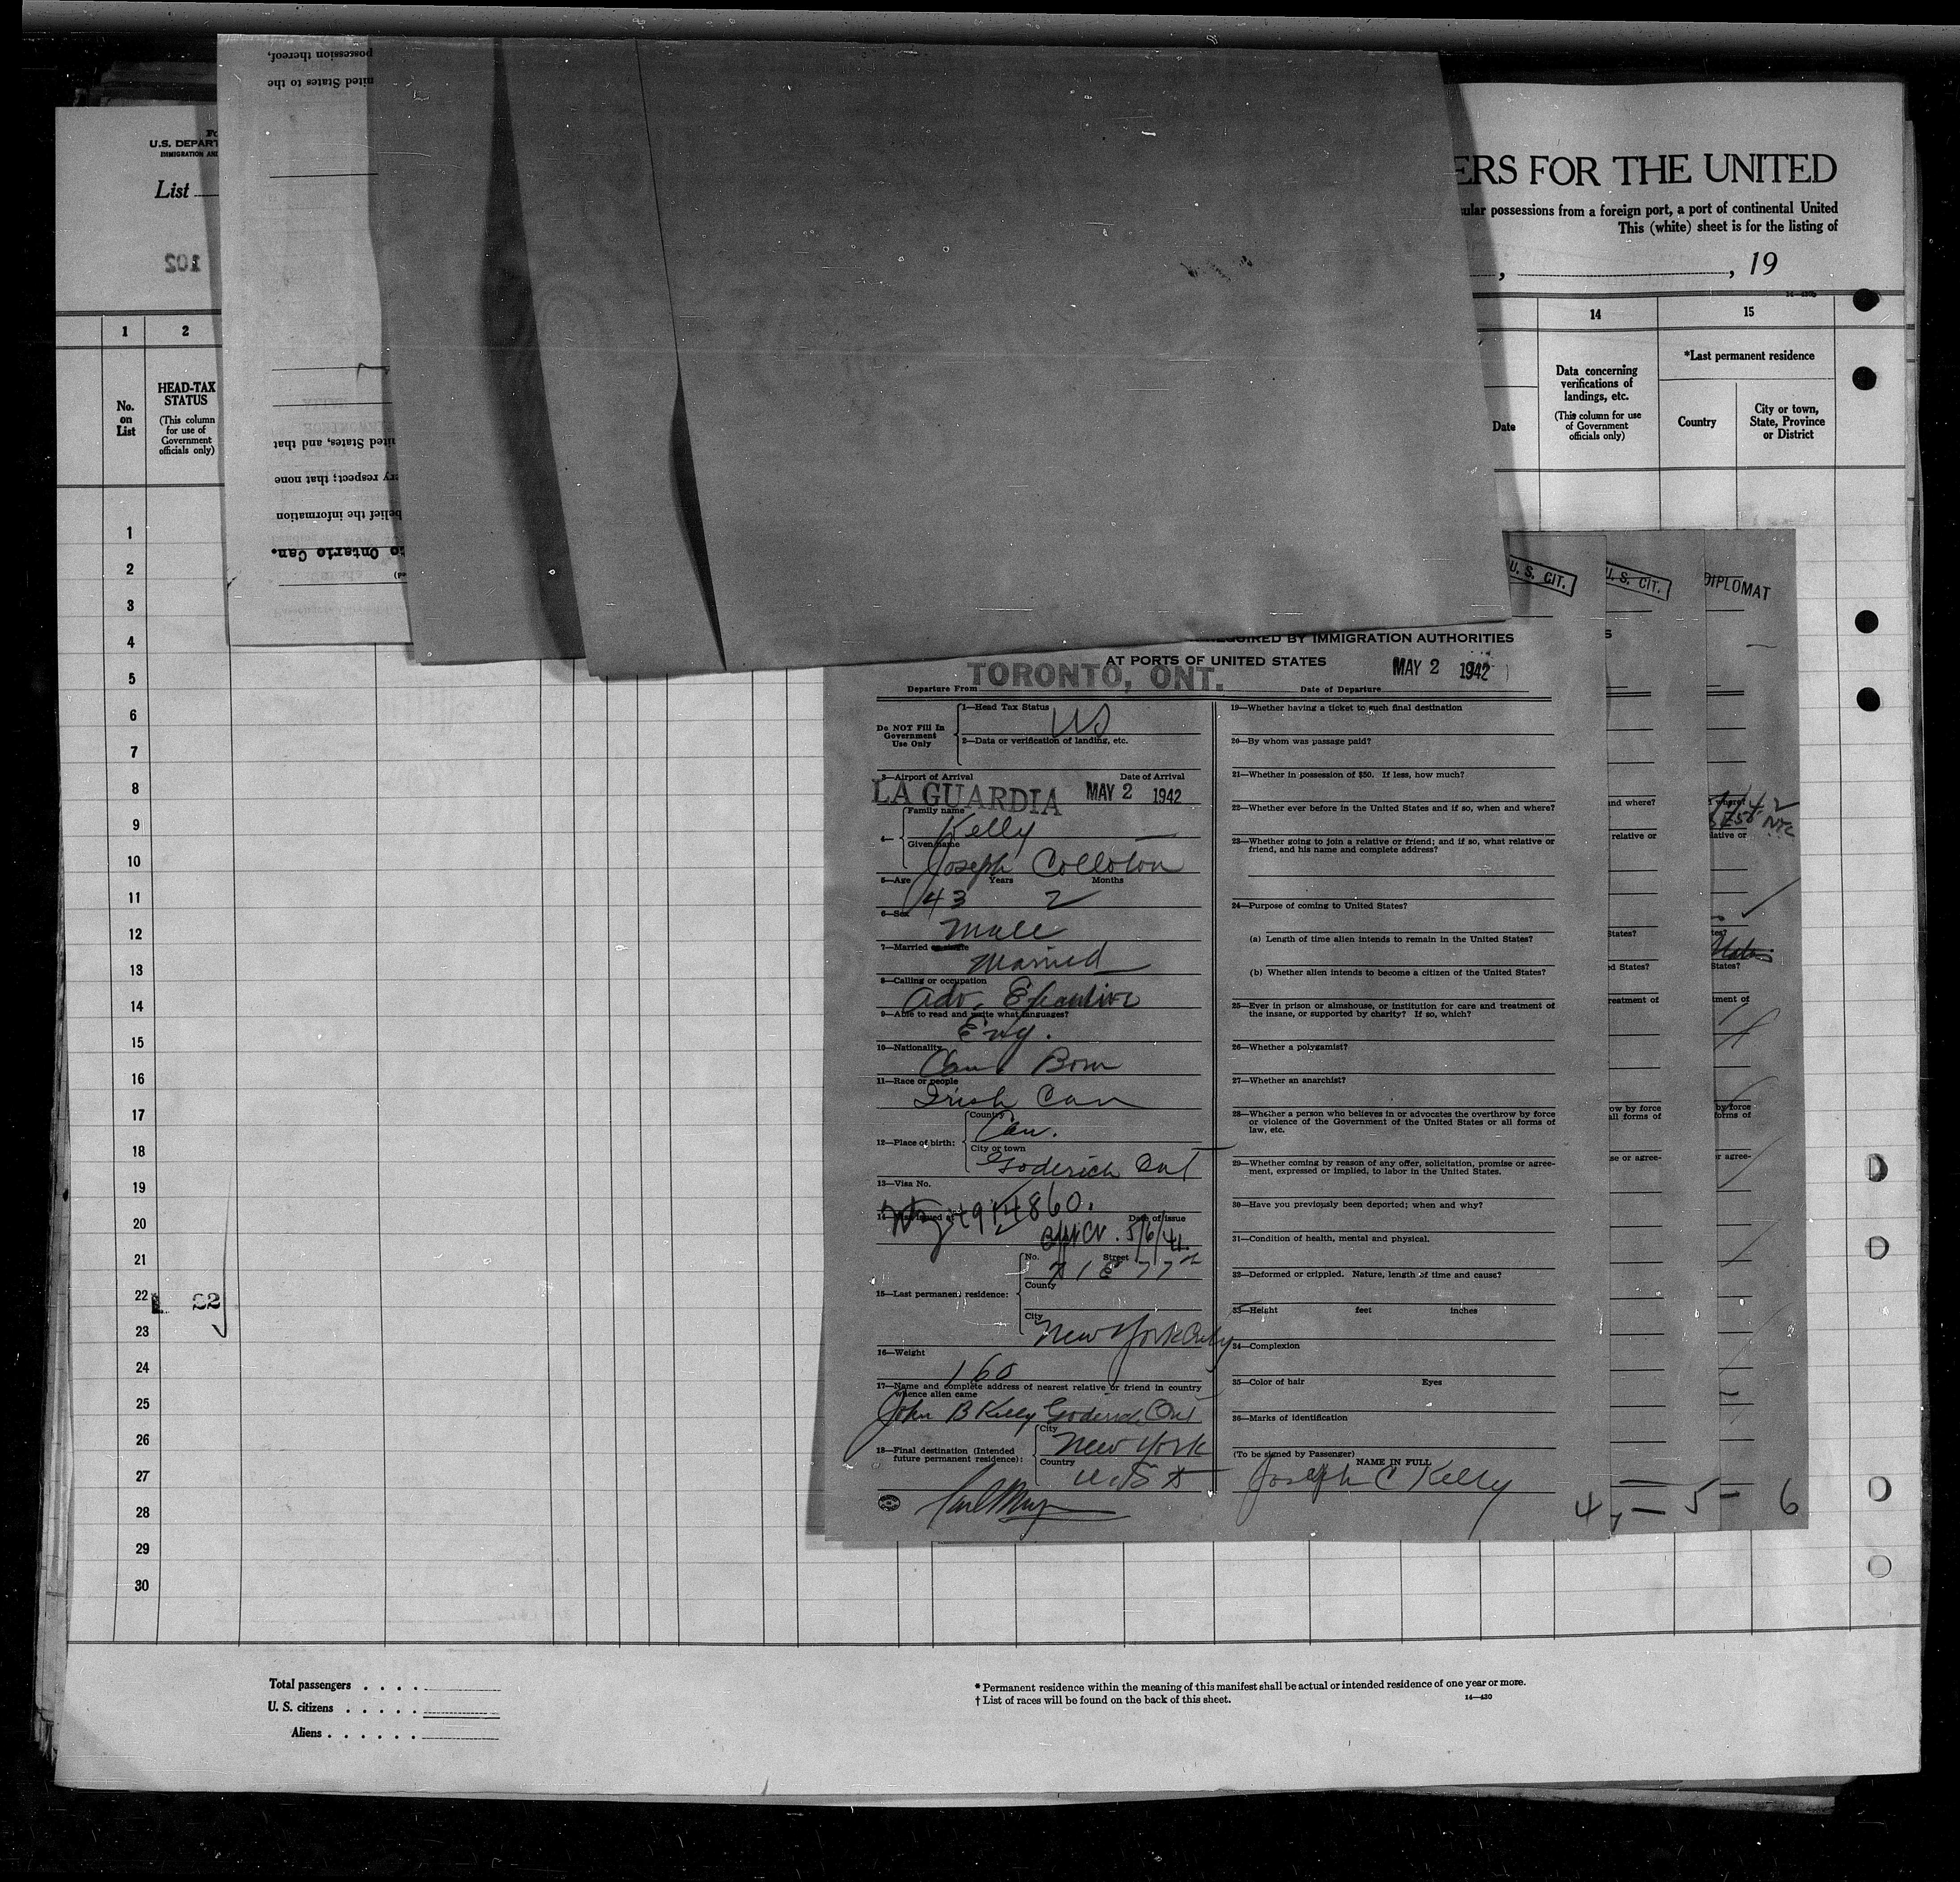 possession thereof,
nited States to the
U.S. DEPART
IMMIGRATION AN
List
102
ited States, and that
ry respect; that none
belief the information
Ontario Can.
ERS FOR THE UNITED
ular possessions from a foreign port, a port of continental United
This (white) sheet is for the listing of
, , 19
1
2
14
15
No. on List
HEAD-TAX STATUS
(This column for use of Government officials only)
Date
Data concerning verifications of landings, etc.
(This column for use of Government officials only)
*Last permanent residence
Country
City or town, State, Province or District
1
2
3
4
5
6
7
8
9
10
11
12
13
14
15
16
17
18
19
20
21
22
23
24
25
26
27
28
29
30
22
U. S. CIT.
U. S. CIT.
DIPLOMAT
REQUIRED BY IMMIGRATION AUTHORITIES
AT PORTS OF UNITED STATES
Departure From TORONTO, ONT.
Date of Departure MAY 2 1942
Do NOT Fill In Government Use Only
1—Head Tax Status US
2—Data or verification of landing, etc.
3—Airport of Arrival Date of Arrival
LA GUARDIA MAY 2 1942
4— Family name
Kelly
Given name
Joseph Colloton
5—Age Years Months
43 2
6—Sex
Male
7—Married or single
Married
8—Calling or occupation
Adv. Executive
9—Able to read and write what languages?
Eng.
10—Nationality
Can. Born
11—Race or people
Irish Can
12—Place of birth:
Country
Can.
City or town
Goderich Ont
13—Visa No.
Date of issue
5/6/41
15—Last permanent residence:
No. Street
County
City
New York City
16—Weight
160
17—Name and complete address of nearest relative or friend in country whence alien came
John B Kelly Goderich Ont
18—Final destination (Intended future permanent residence):
City
New York
Country
U.S A
19—Whether having a ticket to such final destination
20—By whom was passage paid?
21—Whether in possession of $50. If less, how much?
22—Whether ever before in the United States and if so, when and where?
23—Whether going to join a relative or friend; and if so, what relative or
friend, and his name and complete address?
24—Purpose of coming to United States?
(a) Length of time alien intends to remain in the United States?
(b) Whether alien intends to become a citizen of the United States?
25—Ever in prison or almshouse, or institution for care and treatment of
the insane, or supported by charity? If so, which?
26—Whether a polygamist?
27—Whether an anarchist?
28—Whether a person who believes in or advocates the overthrow by force
or violence of the Government of the United States or all forms of
law, etc.
29—Whether coming by reason of any offer, solicitation, promise or agree-
ment, expressed or implied, to labor in the United States.
30—Have you previously been deported; when and why?
31—Condition of health, mental and physical.
32—Deformed or crippled. Nature, length of time and cause?
33—Height feet inches
34—Complexion
35—Color of hair Eyes
36—Marks of identification
(To be signed by Passenger)
NAME IN FULL
Joseph C Kelly
and where?
relative or
States?
ed States?
reatment of
ow by force
all forms of
se or agree-
lative or
States?
tment of
by force
orms of
r agree-
4 — 5 — 6
Total passengers . . . .
U. S. citizens . . . . .
Aliens . . . . . .
* Permanent residence within the meaning of this manifest shall be actual or intended residence of one year or more.
† List of races will be found on the back of this sheet.
14—430